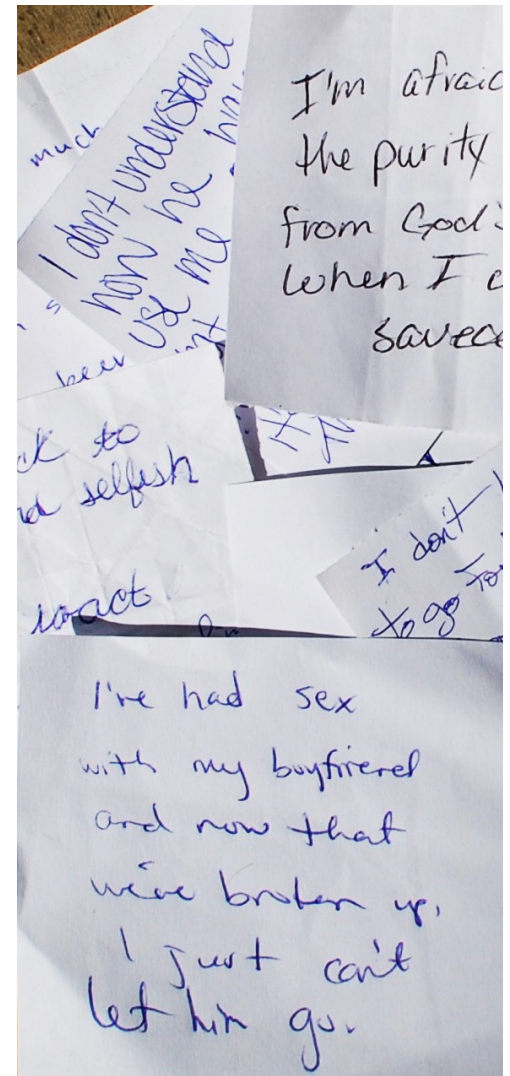 much
I don't understand
how he
use me
been
I'm afraid
the purity
from God's
when I c
saved
ck to
selfish
I don't
to go
I've had sex
with my boyfriend
and now that
we've broken up,
I just can't
let him go.